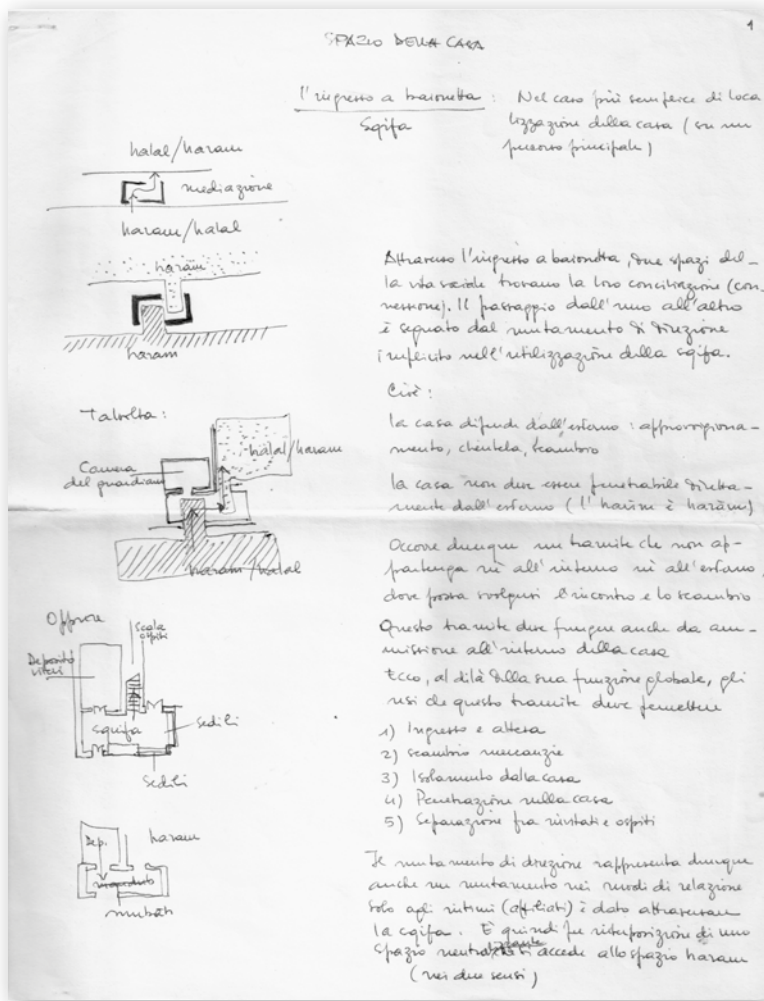 1
SPAZIO DELLA CASA
l'ingresso a baionetta :
Sqifa
Nel caso più semplice di loca
lizzazione della casa (su un
percorso principale)
halal/haram
mediazione
haram/halal
haram
haram
Attraverso l'ingresso a baionetta, due spazi del-
la vita sociale trovano la loro conciliazione (con-
nessione). Il passaggio dall'uno all'altro
è segnato dal mutamento di direzione
implicito nell'utilizzazione della sqifa.
Cioè:
la casa dipende dall'esterno : approvvigiona-
mento, clientela, scambio
la casa non deve essere penetrabile diretta-
mente dall'esterno (l'harim è haràm)
Occorre dunque un tramite che non ap-
partenga nè all'interno nè all'esterno,
dove possa svolgersi l'incontro e lo scambio
Questo tramite deve fungere anche da am-
missione all'interno della casa
Ecco, al di là della sua funzione globale, gli
usi che questo tramite deve permettere
1) Ingresso e attesa
2) scambio mercanzie
3) Isolamento dalla casa
4) Penetrazione nella casa
5) Separazione fra invitati e ospiti
Il mutamento di direzione rappresenta dunque
anche un mutamento nei modi di relazione
solo agli intimi (affiliati) è dato attraversare
la sqifa. È quindi per interposizione di uno
spazio neutralizzante si accede allo spazio haram
(nei due sensi)
Talvolta:
Camera
del guardiano
halal/haram
haram/halal
Oppure
scala
ospiti
Deposito
viveri
sqifa
sedili
sedili
Dep.
haram